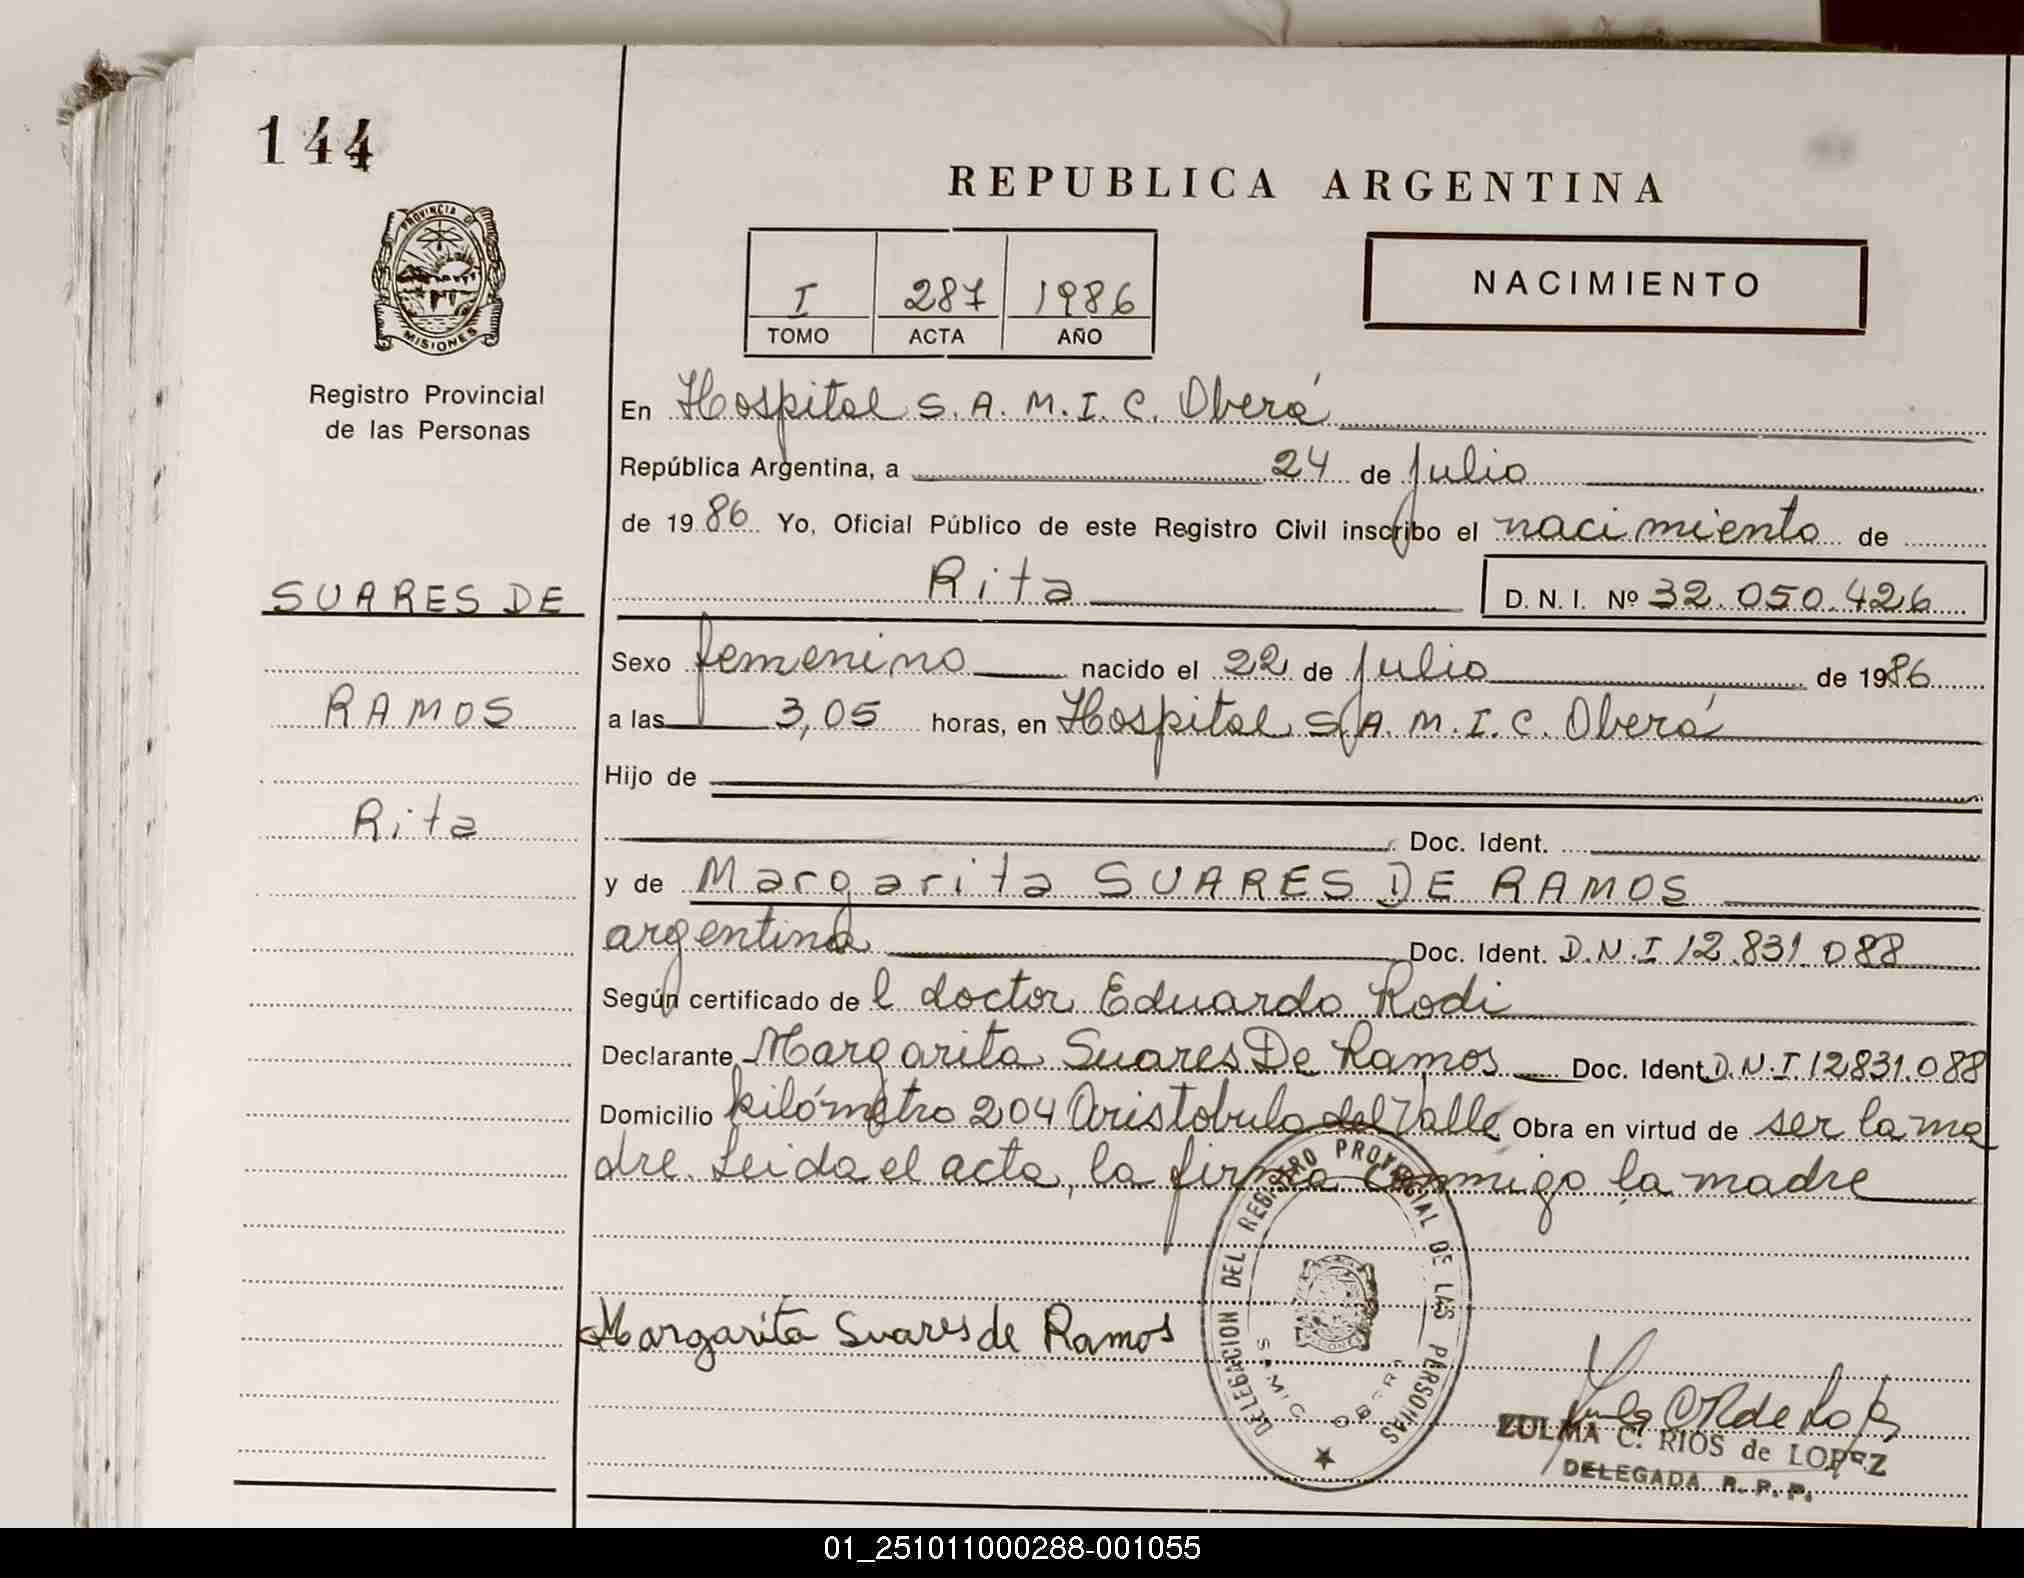 144
REPUBLICA ARGENTINA
PROVINCIA DE
MISIONES
I 287 1986
TOMO ACTA AÑO
NACIMIENTO
Registro Provincial
de las Personas
En Hospital S.A.M.I.C. Oberá
República Argentina, a 24 de julio
de 1986 Yo, Oficial Público de este Registro Civil inscribo el nacimiento de
Rita D. N. I. Nº 32.050.426
SUARES DE
RAMOS
Rita
Sexo femenino nacido el 22 de julio de 1986
a las 3,05 horas, en Hospital S.A.M.I.C. Oberá
Hijo de
Doc. Ident.
y de Margarita SUARES DE RAMOS
argentina Doc. Ident. D.N.I 12.831.088
Según certificado de l doctor Eduardo Rodi
Declarante Margarita Suares De Ramos Doc. Ident. D.N.I 12831.088
Domicilio kilómetro 204 Aristobulo del Valle Obra en virtud de ser la ma
dre. Leida el acta, la firma conmigo la madre
Margarita Suares de Ramos
DELEGACION DEL REGISTRO PROVINCIAL DE LAS PERSONAS
SAMIC OBERA
ZULMA C. RIOS de LOPEZ
DELEGADA R. P. P.
01_251011000288-001055